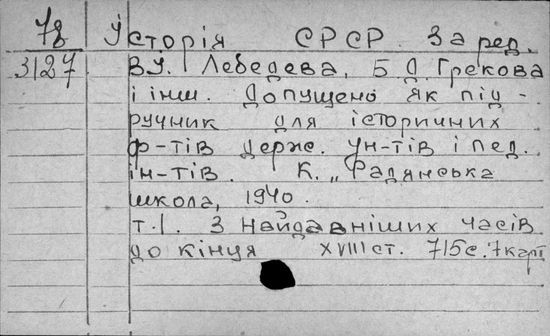 7з Історія СРСР. За ред.
3127 В.У. Лебедєва, Б.Д. Грекова
і інш. Допущено як під-
ручник для історичних
ф-тів держ. ун-тів і пед.
ін-тів. К. „Радянська
школа, 1940.
т.1. З найдавніших часів
до кінця XVIII ст. 715с. 7карт